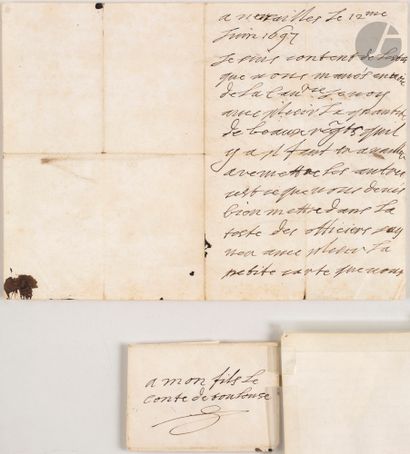 a versailles le 12me
Juin 1697
Je suis content de
que vous mavés
de la Je voy
avec plesir la
de beaux régts quil
y a il faut
a remettre les autres
cest ce que vous devés
bien mettre dans la
teste des officiers jay
veu avec plesir la
petite carte que vous
a mon fils le
conte de toulouse